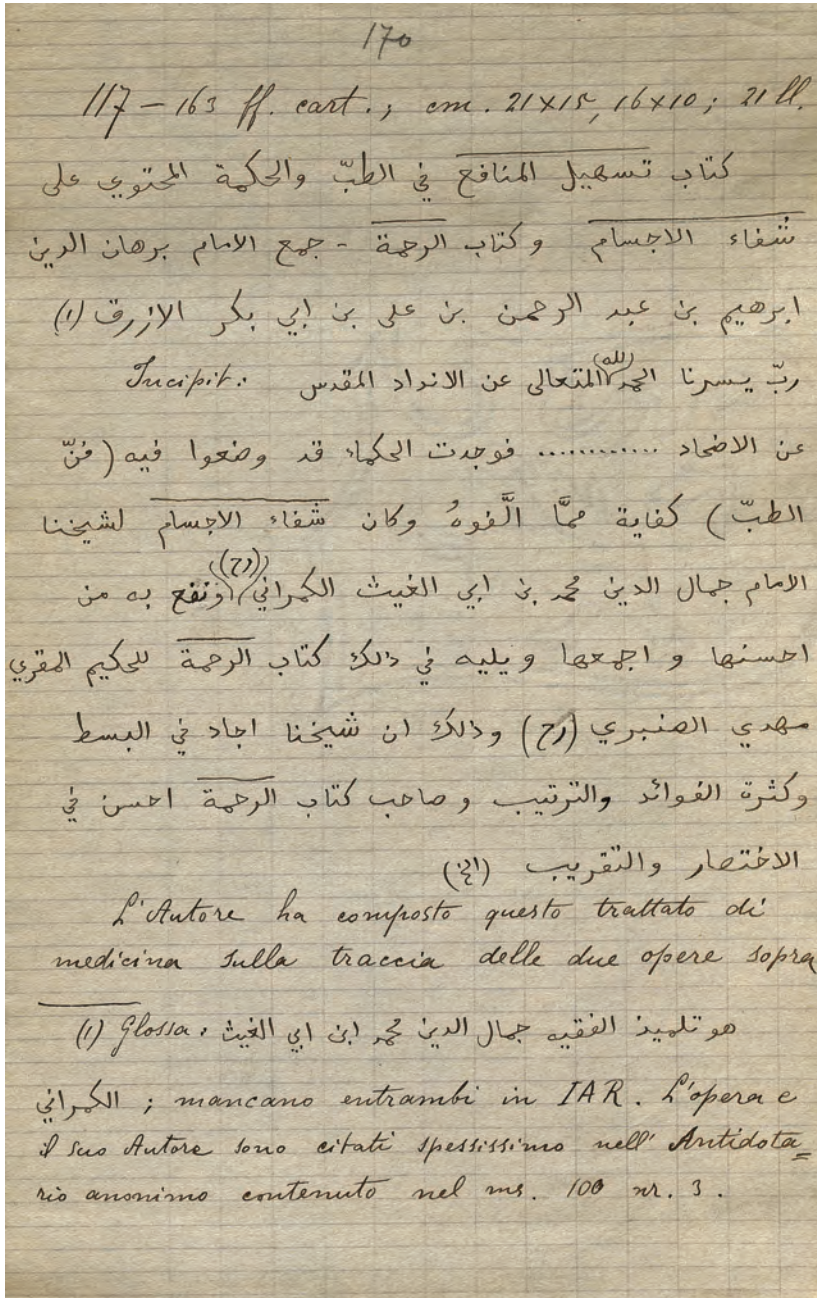 170
117 – 163 ff. cart.; cm. 21x15, 16x10; 21 ll.
كتاب تسهيل المنافع في الطبّ والحكمة المحتوي على
شفاء الاجسام وكتاب الرحمة - جمع الامام برهان الدين
ابرهيم بن عبد الرحمن بن على بن ابي بكر الازرق (١)
Incipit: ربّ يسرنا الحمد (لله) المتعالى عن الانداد المقدس
عن الاضداد ............ فوجدت الحكماء قد وضعوا فيه (فنّ
الطبّ) كفاية ممَّا الَّفوهُ وكان شفاء الاجسام لشيخنا
الامام جمال الدين محمد بن ابي الغيث الكمراني ((رح)) ونفع به من
احسنها و اجمعها ويليه في ذلك كتاب الرحمة للحكيم المقري
مهدي الصنبري (رح) وذلك ان شيخنا اجاد في البسط
وكثرة الفوائد والترتيب وصاحب كتاب الرحمة احسن في
الاختصار والتقريب (الخ)
L'Autore ha composto questo trattato di
medicina sulla traccia delle due opere sopra
(1) Glossa: هو تلميذ الفقيه جمال الدين محمد ابن ابي الغيث
الكمراني ; mancano entrambi in IAR. L'opera e
il suo Autore sono citati spessissimo nell'Antidota=
rio anonimo contenuto nel ms. 100 nr. 3.